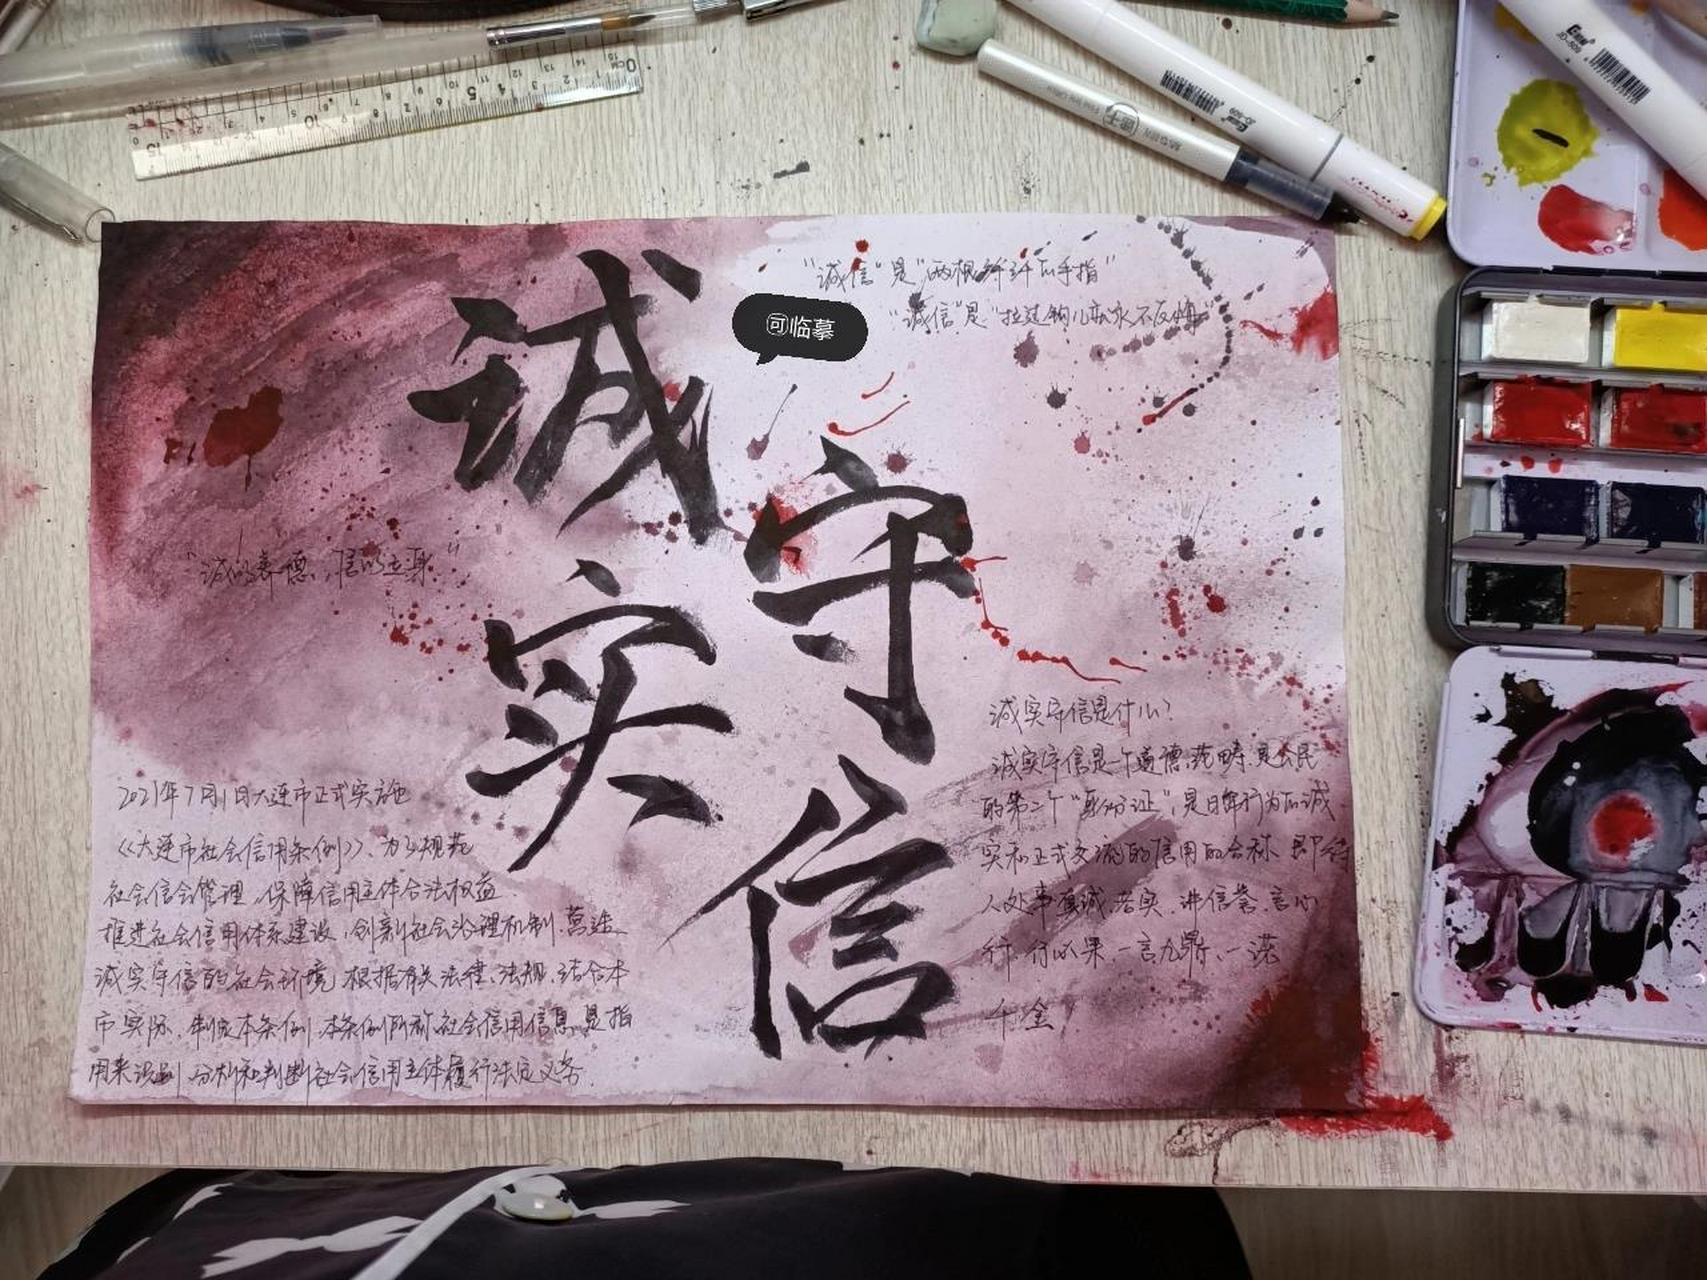 诚实
守信
可临摹
"诚信"是"两根纤纤的手指"
"诚信"是"拉过钩儿就永不反悔"
"诚以养德,信以立身"
2021年7月1日大连市正式实施
《大连市社会信用条例》、为了规范
社会信会管理、保障信用主体合法权益
推进社会信用体系建设,创新社会治理机制、营造
诚实守信的社会环境,根据有关法律、法规、结合本
市实际、制定本条例,本条例所称社会信用信息,是指
用来识别,分析和判断社会信用主体履行法定义务.
诚实守信是什么?
诚实守信是一个道德范畴,是公民
的第二个"身份证",是日常行为的诚
实和正式交流的信用的合称.即待
人处事真诚、老实、讲信誉、言必
行、行必果、一言九鼎、一诺
千金